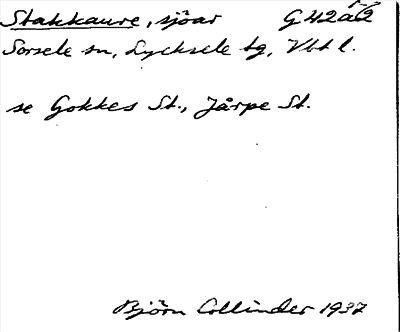 Stakkaure, sjöar G42a62
Sorsele sn, Lycksele tg, Vbt l.
se Gokkes St., Jårpe St.
Björn Collinder 1937